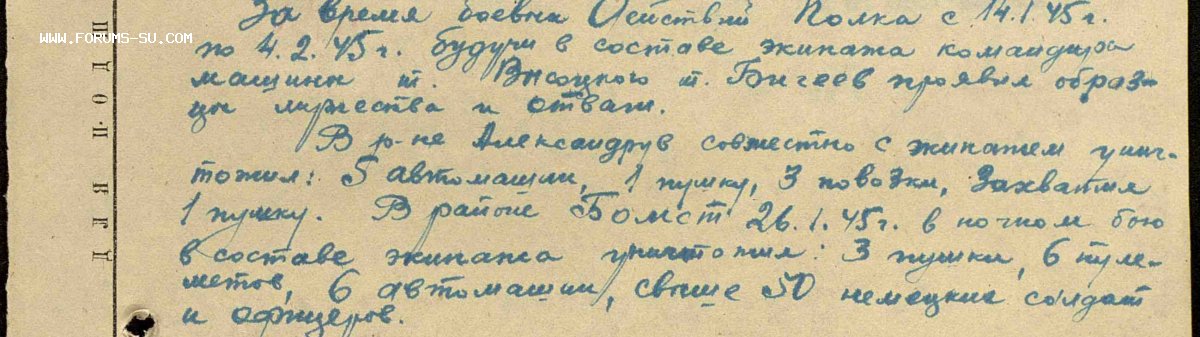 За время боевых действий Полка с 14.1.45г.
WWW.FORUMS-SU.COM
по 4.2.45г. будучи в составе экипажа командира
машины т. Высоцкого т. Бигеев проявил образ-
цы мужества и отваги.
В р-не Александрув совместно с экипажем унич-
тожил: 5 автомашин, 1 пушку, 3 повозки, захватил
1 пушку. В районе Бомст 26.1.45г. в ночном бою
в составе экипажа уничтожил: 3 пушки, 6 пуле-
метов, 6 автомашин, свыше 50 немецких солдат
и офицеров.